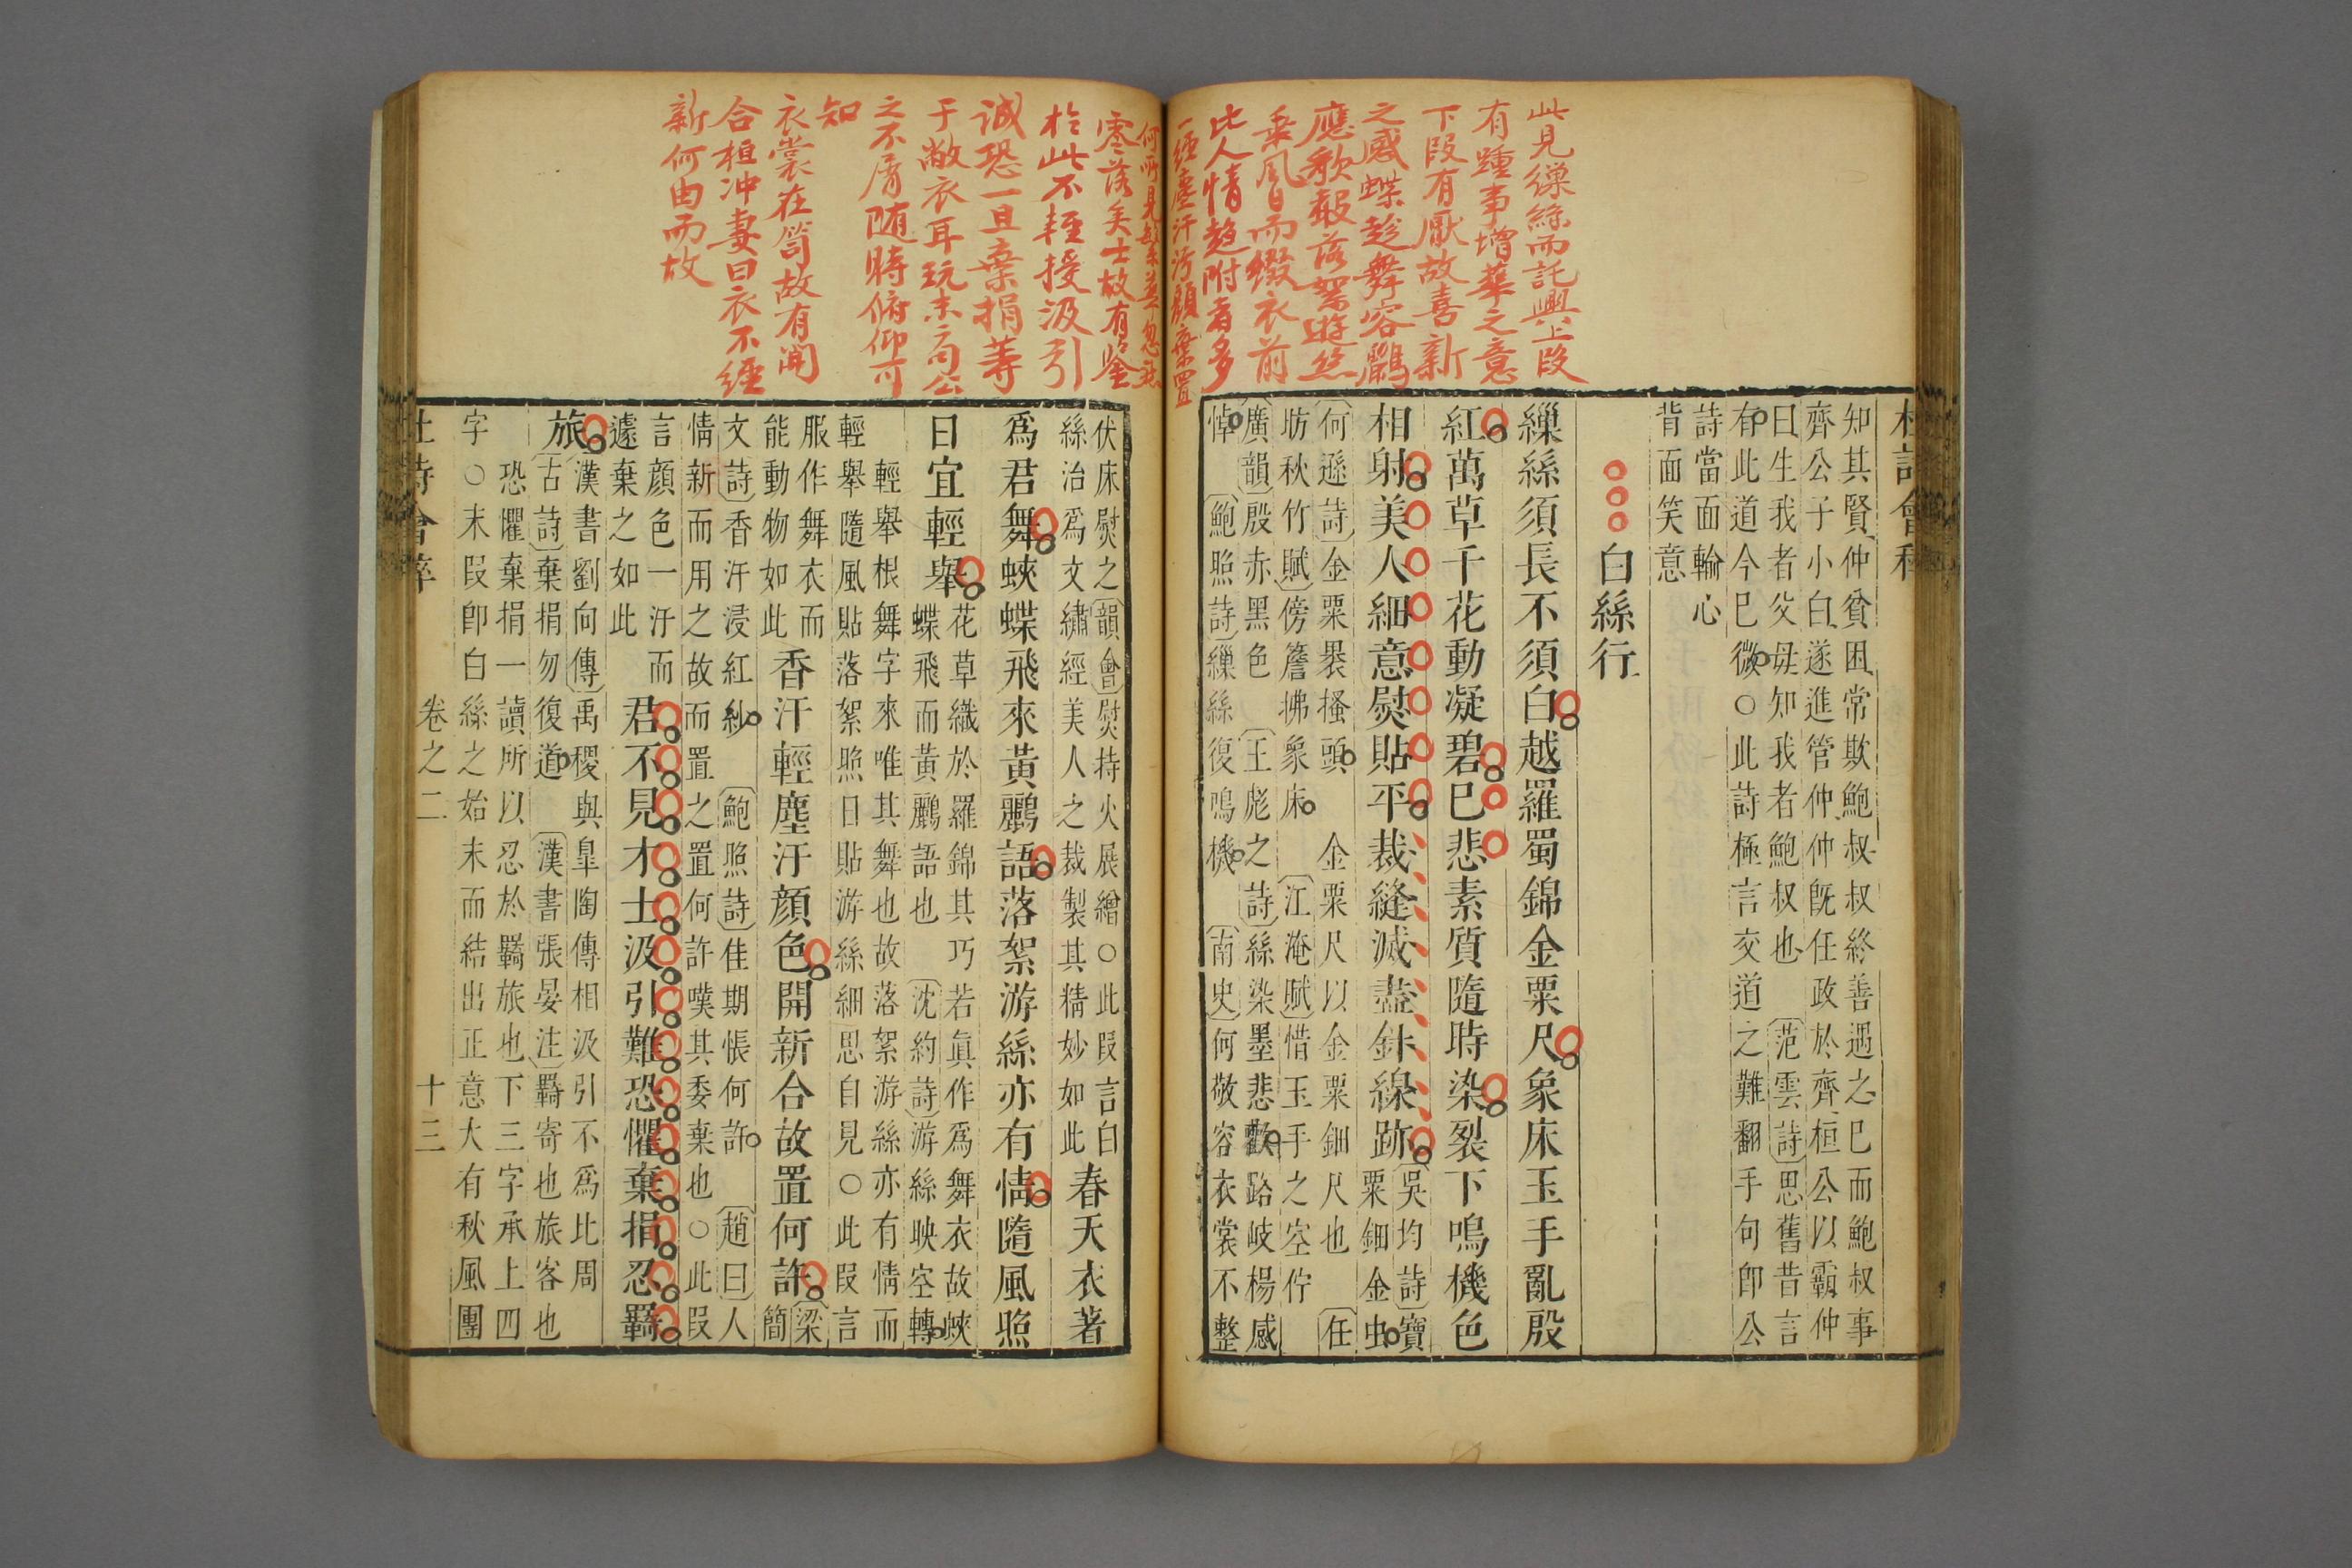 此見繅絲而託興上段
有踵事增華之意
下段有厭故喜新
之感蝶趁舞容鸝
應歌聲落絮遊絲
乘風日而綴衣前
比人情趨附者多
一經塵汗污顏棄置
何所見繁華忽
零落矣士故有鑒
於此不輕授汲引
誠恐一旦棄捐等
于敝衣耳玩末句公
之不屑隨時俯仰可
知
衣裳在笥故有聞
合桓沖妻曰衣不經
新何由而故
杜詩會稡
知其賢仲貧困常欺鮑叔叔終善遇之已而鮑叔事
齊公子小白遂進管仲仲旣任政於齊桓公以霸仲
曰生我者父母知我者鮑叔也 范雲詩思舊昔言
有此道今已微○此詩極言交道之難翻手句卽公
詩當面輸心
背面笑意
白絲行
繅絲須長不須白越羅蜀錦金粟尺象床玉手亂殷
紅萬草千花動凝碧已悲素質隨時染裂下鳴機色
相射美人細意熨貼平裁縫滅盡針線跡
吳均詩寶
粟鈿金虫 任
何遜詩金粟裹搔頭 金粟尺以金粟鈿尺也
昉秋竹賦傍簷拂象床 江淹賦惜玉手之空佇
廣韻殷赤黑色 王彪之詩絲染墨悲歎路岐楊感
悼 鮑照詩繅絲復鳴機 南史何敬容衣裳不整
伏床熨之韻會熨持火展繒○此段言白
絲治爲文繡經美人之裁製其精妙如此
春天衣著
爲君舞蛺蝶飛來黃鸝語落絮游絲亦有情隨風照
日宜輕舉
花草織於羅錦其巧若眞作爲舞衣故蛺
蝶飛而黃鸝語也 沈約詩游絲映空轉
輕舉根舞字來唯其舞也故落絮游絲亦有情而
輕舉隨風貼落絮照日貼游絲細思自見○此段言
服作舞衣而
能動物如此
香汗輕塵汙顏色開新合故置何許
梁簡
文詩香汗浸紅紗 鮑照詩佳期悵何許 趙曰人
情新而用之故而置之置何許嘆其委棄也○此段
言顏色一汗而
遽棄之如此
君不見才士汲引難恐懼棄捐忍羈
旅
漢書劉向傳禹稷與臯陶傳相汲引不爲比周
古詩棄捐勿復道 漢書張晏注羇寄也旅客也
恐懼棄捐一讀所以忍於羇旅也下三字承上四
字○末段卽白絲之始末而結出正意大有秋風團
杜詩會稡 卷之二 十三